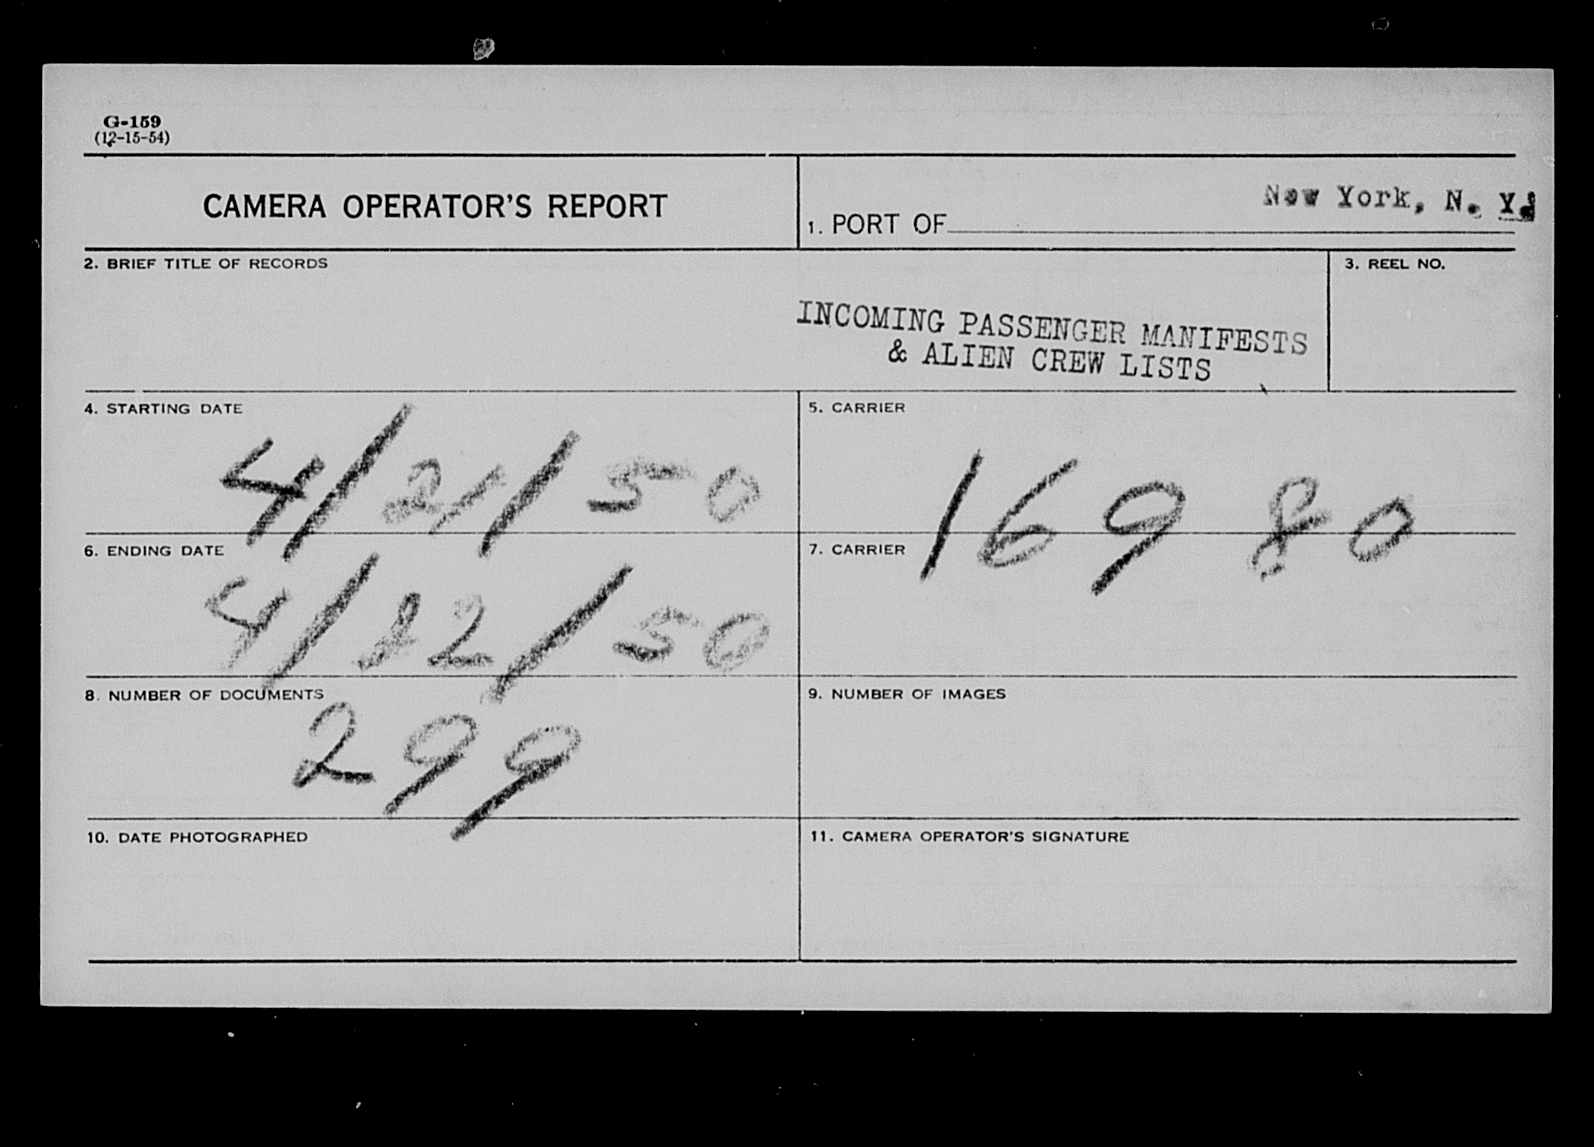 G-159
(12-15-54)
CAMERA OPERATOR'S REPORT
1. PORT OF New York, N. Y.
2. BRIEF TITLE OF RECORDS
INCOMING PASSENGER MANIFESTS
& ALIEN CREW LISTS
3. REEL NO.
4. STARTING DATE
4/21/50
5. CARRIER
16980
6. ENDING DATE
4/22/50
7. CARRIER
8. NUMBER OF DOCUMENTS
299
9. NUMBER OF IMAGES
10. DATE PHOTOGRAPHED
11. CAMERA OPERATOR'S SIGNATURE